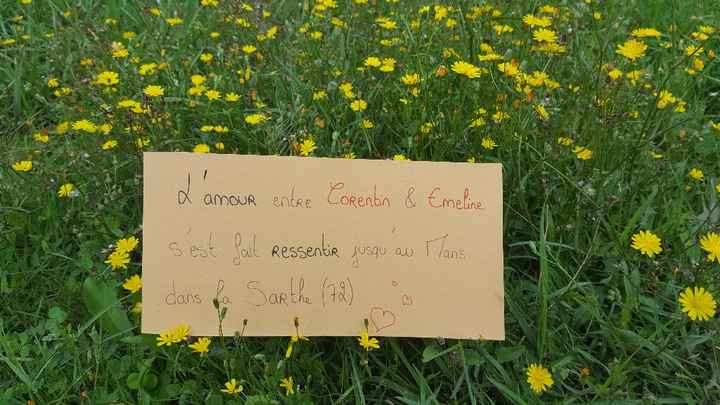 L'amour entre Corentin & Emeline
s'est fait ressentir jusqu'au Mans
dans la Sarthe (72)